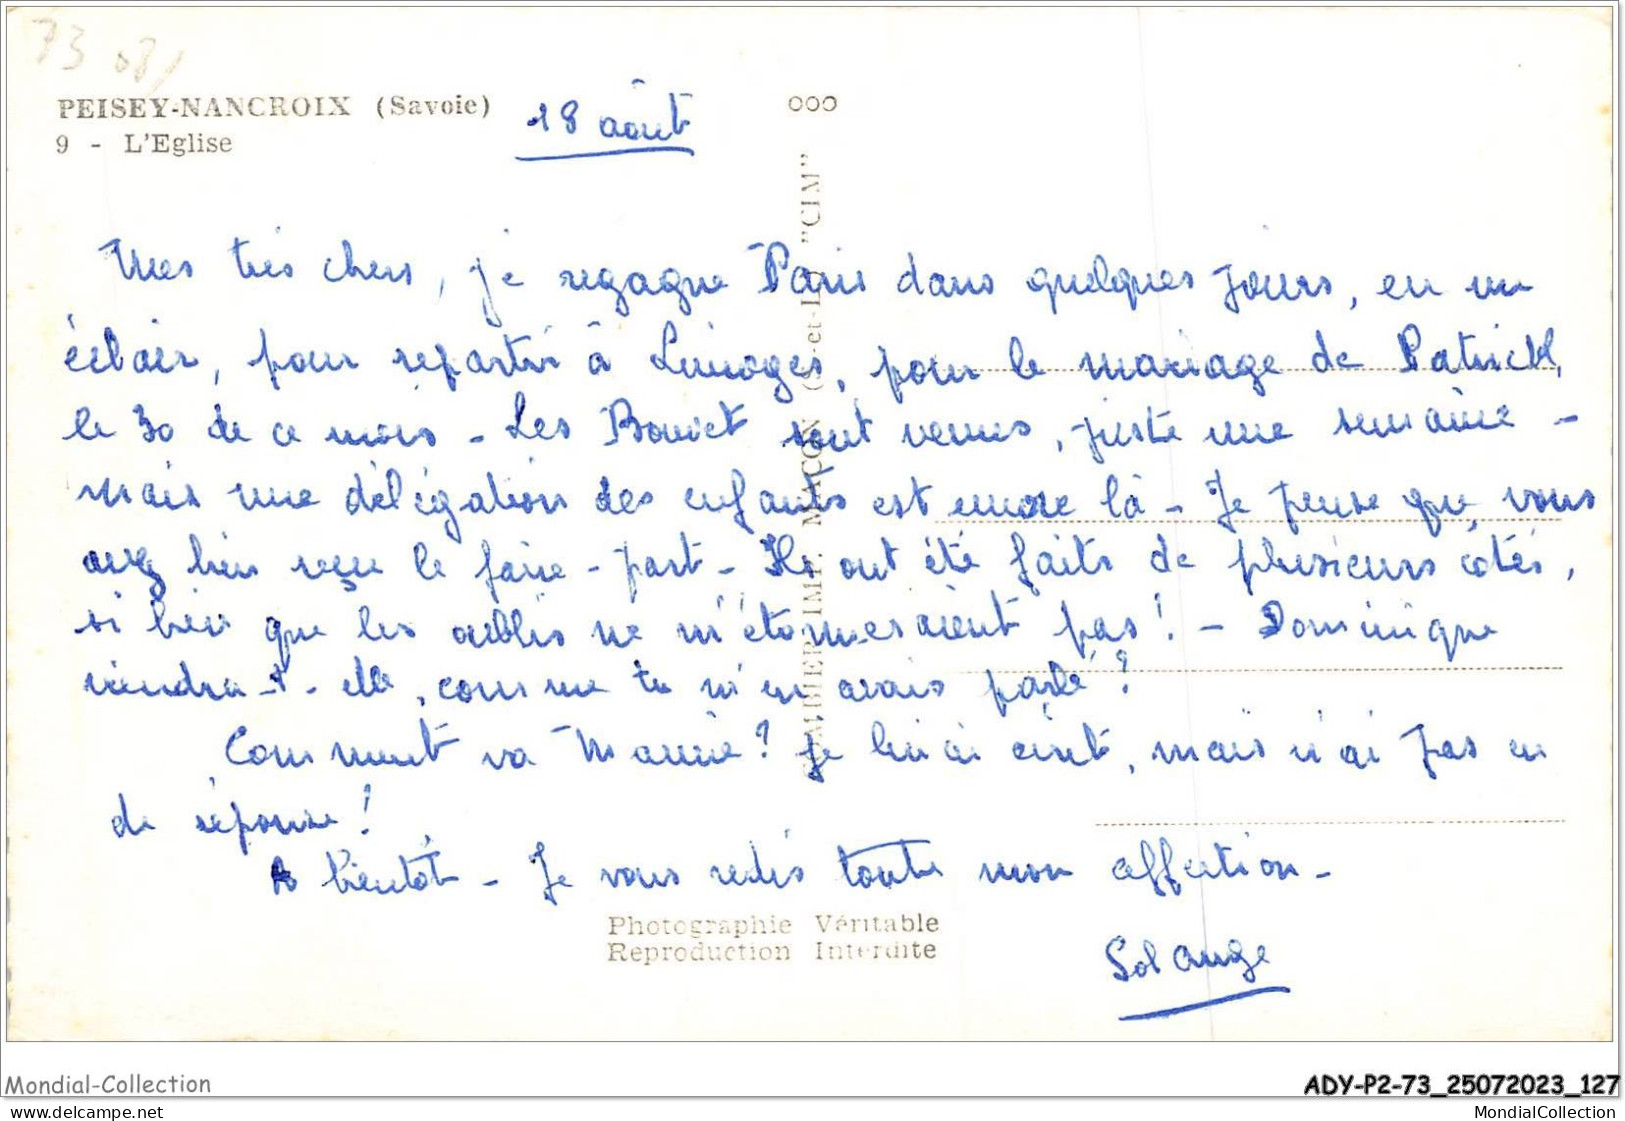 73 081
PEISEY-NANCROIX (Savoie)
9 - L'Eglise
18 août
Mes très chers, je regagne Paris dans quelques jours, en un
éclair, pour repartir à Limoges, pour le mariage de Patrick,
le 30 de ce mois - Les Bouvet sont venus, juste une semaine -
mais une délégation des enfants est encore là - Je pense que vous
avez bien reçu le faire-part - Ils ont été faits de plusieurs côtés,
si bien que les oublis ne m'étonneraient pas ! - Dominique
viendra-t-elle, comme tu m'en avais parlé ?
Comment va Mamie ? Je lui ai écrit, mais n'ai pas eu
de réponse !
A bientôt - Je vous redis toute mon affection -
Solange
COMBIER IMP. MACON (S-et-L) "CIM"
Photographie Véritable
Reproduction Interdite
Mondial-Collection
ADY-P2-73_25072023_127
© delcampe.net
MondialCollection